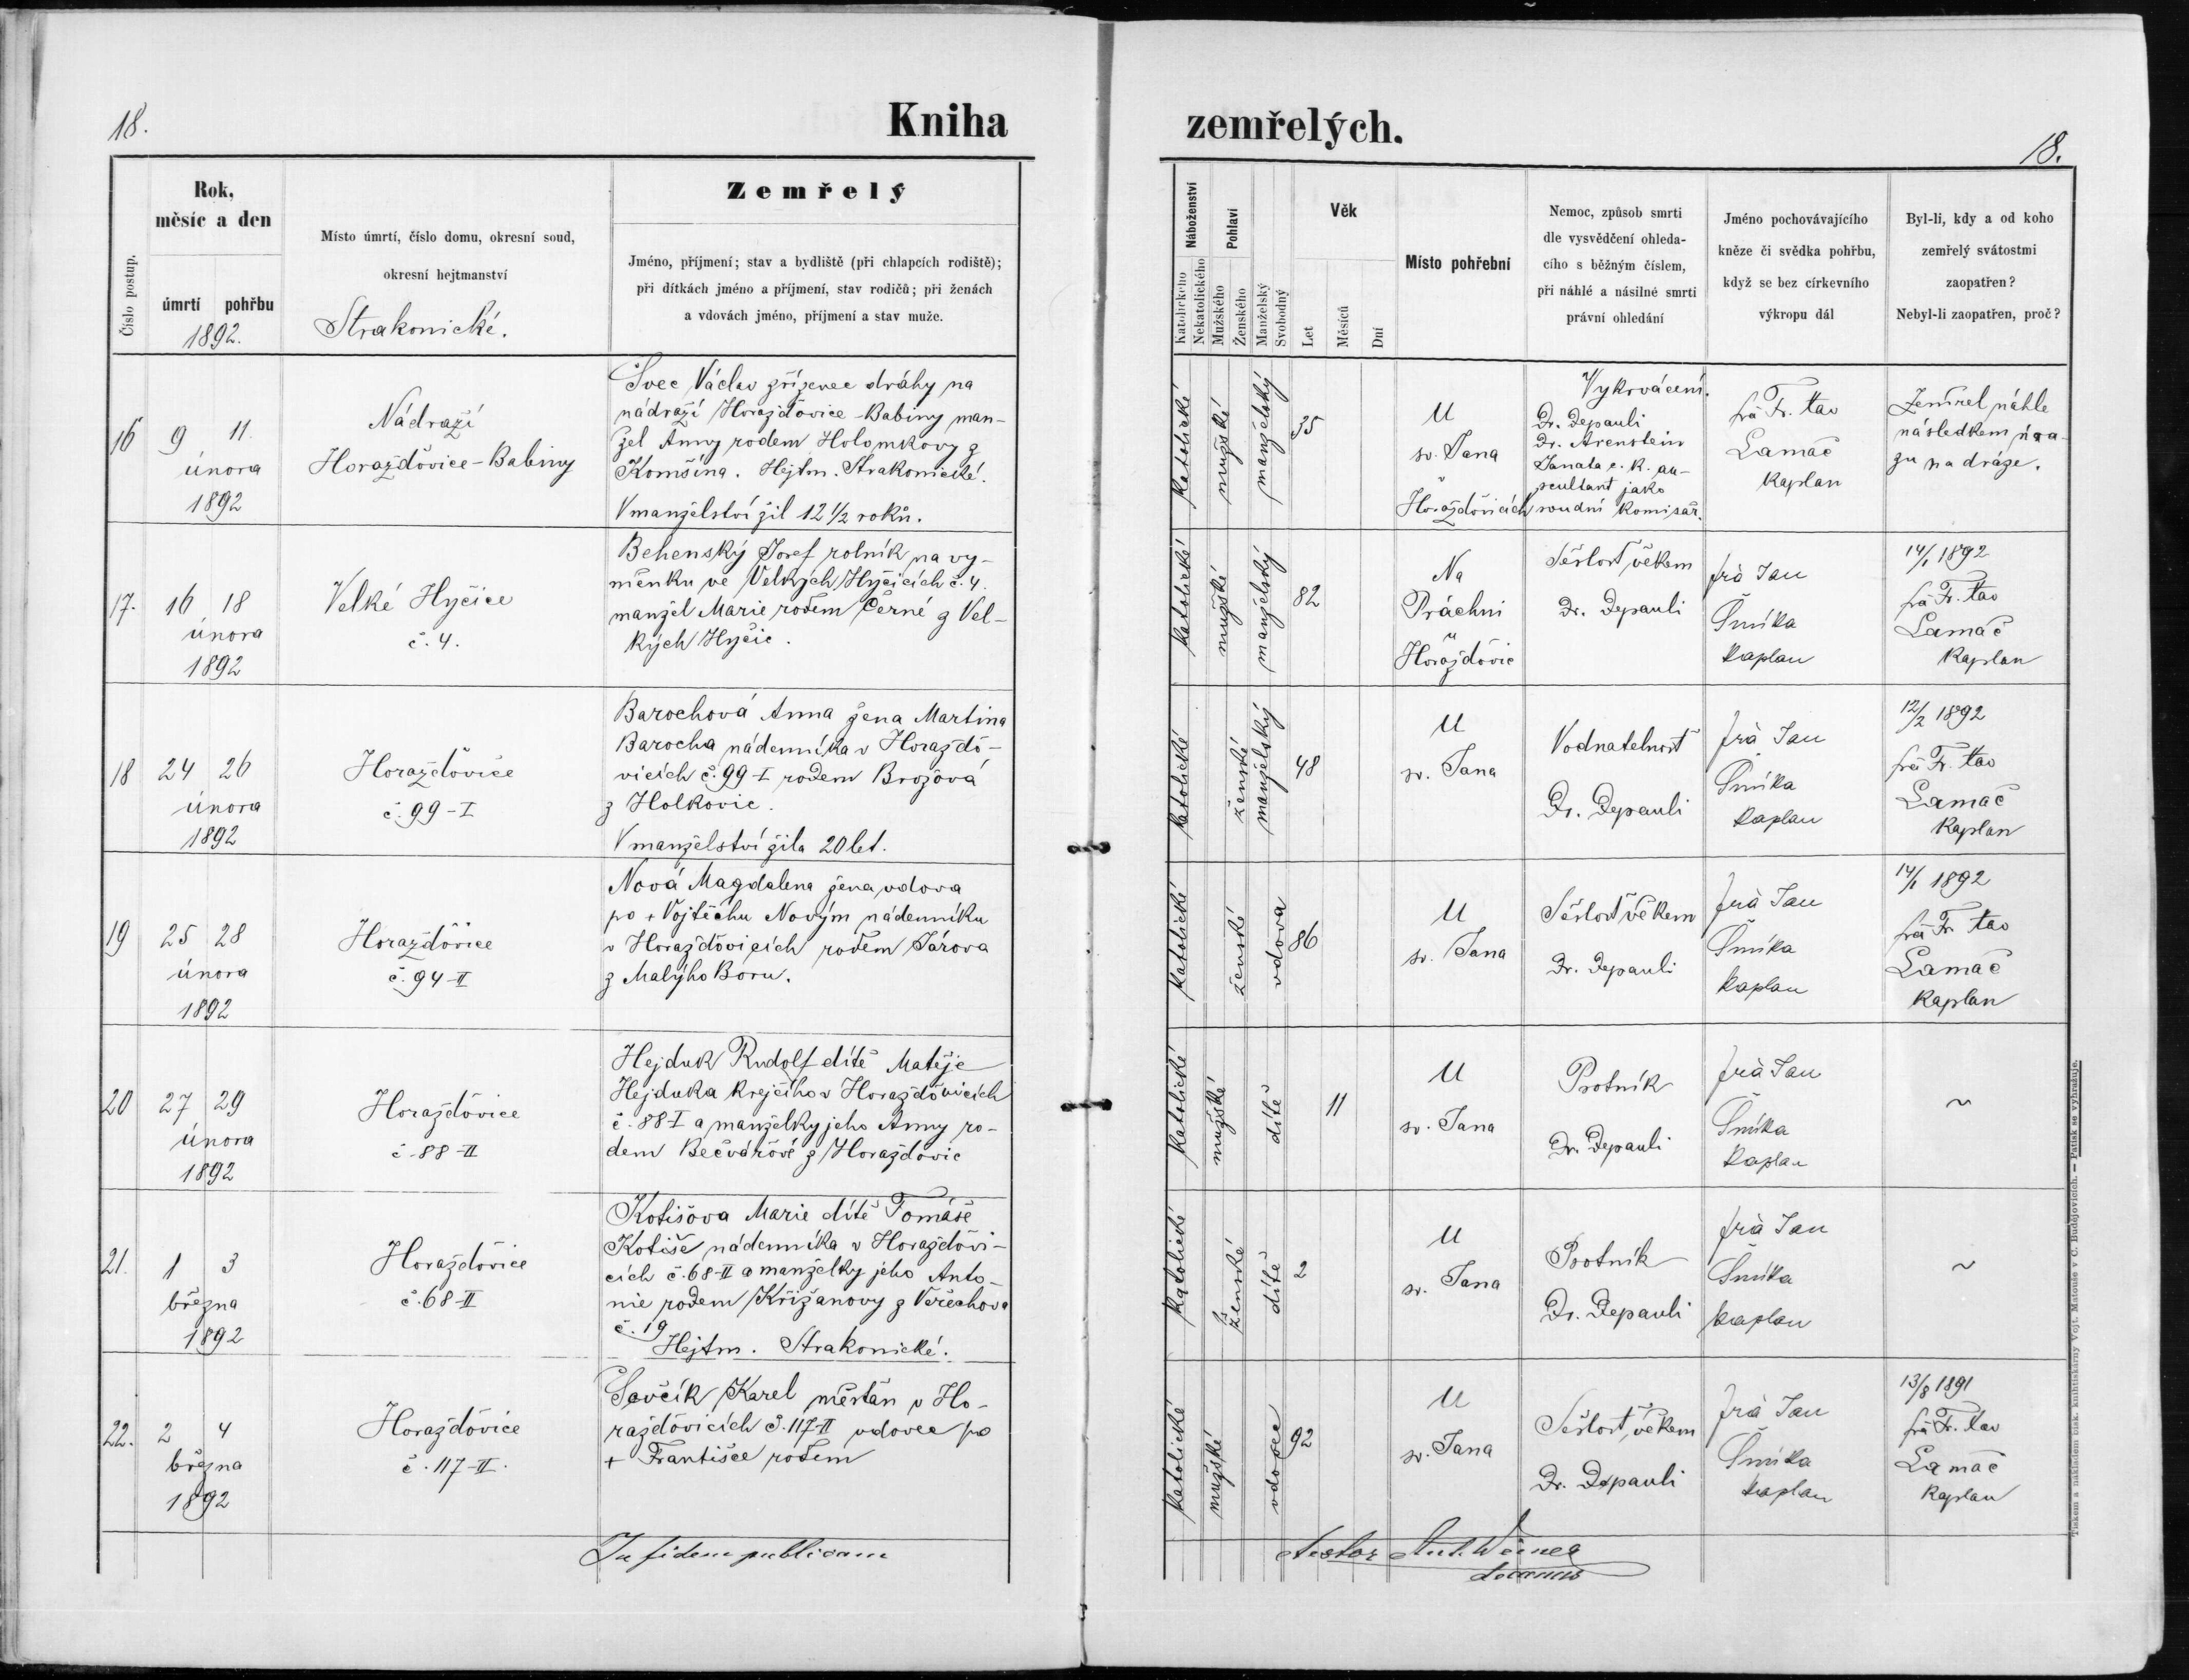 18.
Kniha
zemřelých.
18.
Číslo postup.
Rok,
měsíc a den
úmrtí pohřbu
1892.
Místo úmrtí, číslo domu, okresní soud,
okresní hejtmanství
Strakonické.
Zemřelý
Jméno, příjmení; stav a bydliště (při chlapcích rodiště);
při dítkách jméno a příjmení, stav rodičů; při ženách
a vdovách jméno, příjmení a stav muže.
Náboženství
Katolického
Nekatolického
Pohlaví
Mužského
Ženského
Manželský
Svobodný
Věk
Let
Měsíců
Dní
Místo pohřební
Nemoc, způsob smrti
dle vysvědčení ohleda-
cího s běžným číslem,
při náhlé a násilné smrti
právní ohledání
Jméno pochovávajícího
kněze či svědka pohřbu,
když se bez církevního
výkropu dál
Byl-li, kdy a od koho
zemřelý svátostmi
zaopatřen?
Nebyl-li zaopatřen, proč?
16 9 11.
února
1892
Nádraží
Horažďovice-Babiny
Švec Václav zřízenec dráhy na
nádraží Horažďovice-Babiny man-
žel Anny rodem Holomkovy z
Komšína. Hejtm. Strakonické.
V manželství žil 12 1/2 roků.
katolické
mužské
manželský
35
U
sv. Jana
v
Horažďovicích
Vykrvácení.
Dr. Depauli
Dr. Arenstein
Janata c. k. au-
scultant jako
soudní komisař.
frà Fr. Xav
Lamač
kaplan
Zemřel náhle
následkem úra-
zu na dráze.
17. 16 18
února
1892
Velké Hyčice
č. 4.
Behenský Josef rolník na vy-
měnku ve Velkých Hyčicích č. 4.
manžel Marie rodem Černé z Vel-
kých Hyčic.
katolické
mužské
manželský
82
Na
Práchni
u
Horažďovic
Sešlost věkem
Dr. Depauli
frà Jan
Šmíka
kaplan
14/1 1892
frà Fr. Xav
Lamač
kaplan
18 24 26
února
1892
Horažďovice
č. 99-I
Barochová Anna žena Martina
Barocha nádenníka v Horažďo-
vicích č. 99-I rodem Brožová
z Holkovic.
V manželství žila 20 let.
katolické
ženské
manželský
48
U
sv. Jana
Vodnatelnost
Dr. Depauli
frà Jan
Šmíka
kaplan
12/2 1892
frà Fr. Xav
Lamač
kaplan
19 25 28
února
1892
Horažďovice
č. 94-II
Nová Magdalena žena vdova
po + Vojtěchu Novým nádenníku
v Horažďovicích rodem Járova
z Malýho Boru.
katolické
ženské
vdova
86
U
sv. Jana
Sešlost věkem
Dr. Depauli
frà Jan
Šmíka
kaplan
14/1 1892
frà Fr Xav
Lamač
kaplan
20 27 29
února
1892
Horažďovice
č-88-II
Hejduk Rudolf dítě Matěje
Hejduka krejčího v Horažďovicích
č. 88-I a manželky jeho Anny ro-
dem Bečvářové z Horažďovic
katolické
mužské
dítě
11
U
sv. Jana
Psotník
Dr. Depauli
frà Jan
Šmíka
kaplan
~
21. 1 3
března
1892
Horažďovice
č. 68-II
Kotišova Marie dítě Tomáše
Kotiše nádenníka v Horažďovi-
cích č. 68-II a manželky jeho Anto-
nie rodem Křižanovy z Veřechova
č. 19
Hejtm. Strakonické.
katolické
ženské
dítě
2
U
sv. Jana
Psotník
Dr. Depauli
frà Jan
Šmíka
kaplan
~
22. 2 4
března
1892
Horažďovice
č. 117-II.
Ševčík Karel měšťan v Ho-
ražďovicích č. 117-II vdovec po
+ Františce rodem
katolické
mužské
vdovec
92
U
sv. Jana
Sešlost věkem
Dr. Depauli
frà Jan
Šmíka
kaplan
13/8 1891
frà Fr. Xav
Lamač
kaplan
In fidem publicam
Tiskem a nákladem bisk. knihtiskárny Vojt. Matouše v Č. Budějovicích. — Patisk se vyhražuje.